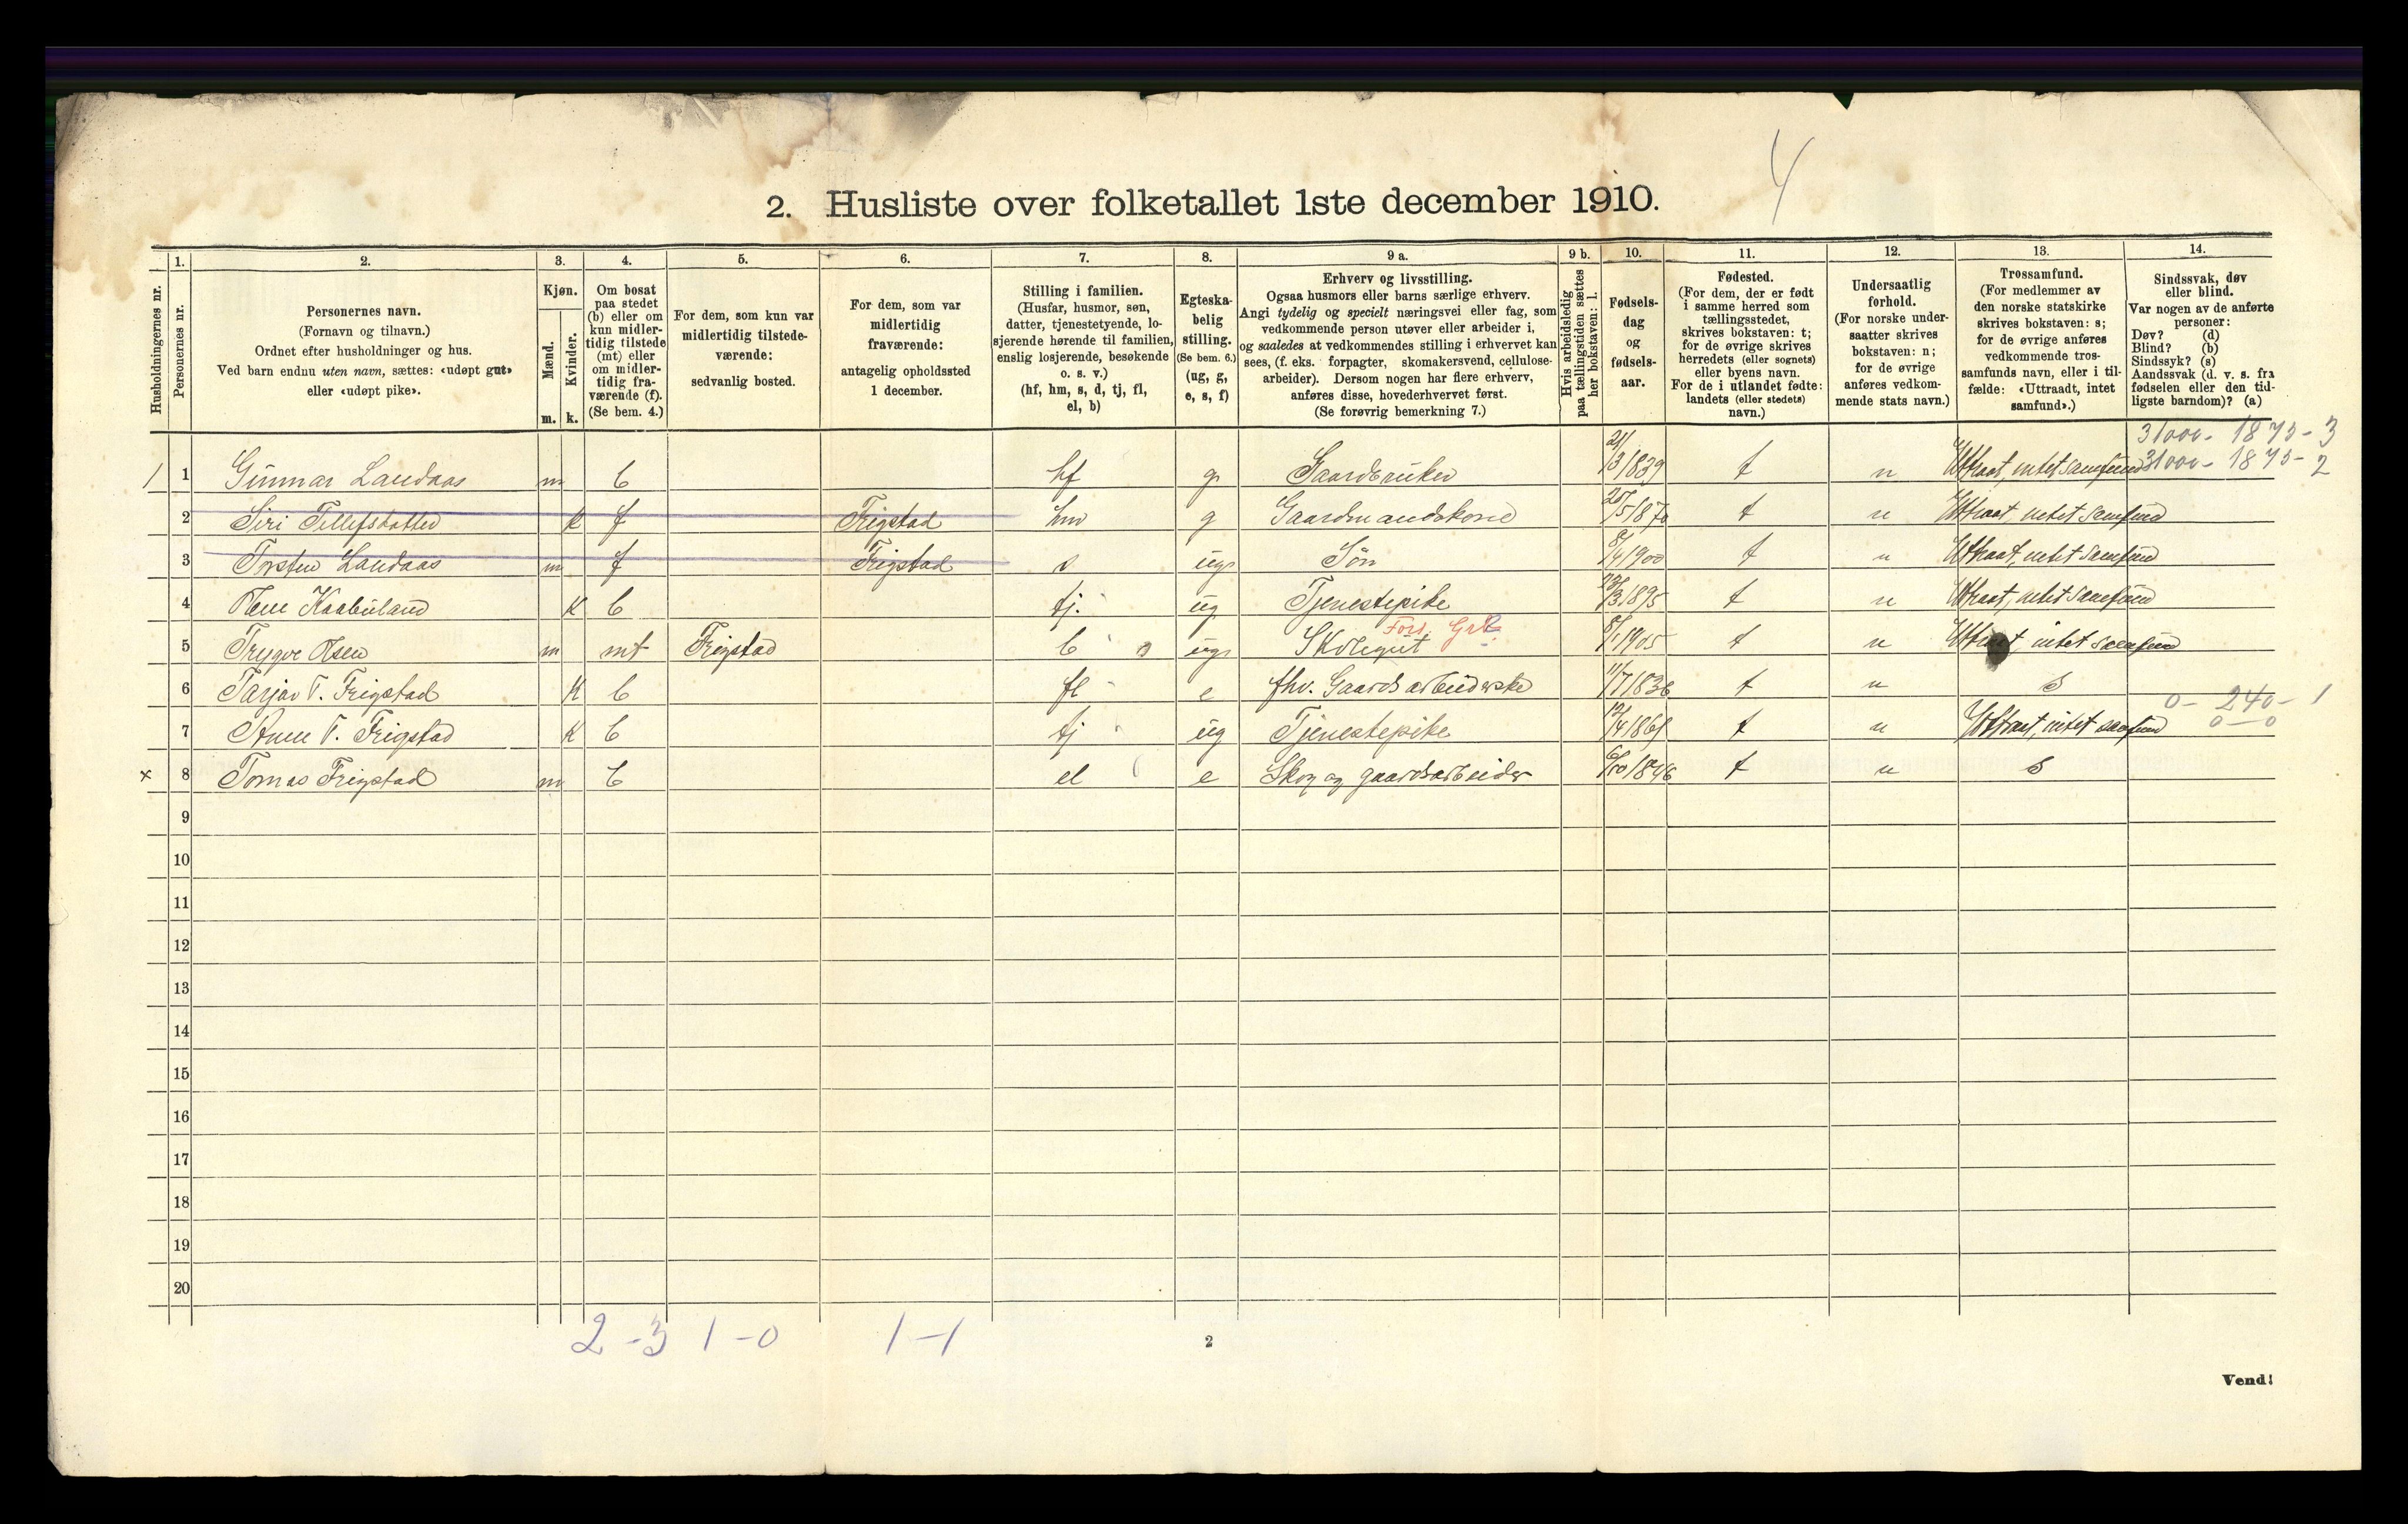 4
2. Husliste over folketallet 1ste december 1910.
Husholdningernes nr.
1.
Personernes nr.
2.
Personernes navn.
(Fornavn og tilnavn.)
Ordnet efter husholdninger og hus.
Ved barn endnu uten navn, sættes: «udøpt gut»
eller «udøpt pike».
3.
Kjøn.
Mænd.
Kvinder.
m. k.
4.
Om bosat
paa stedet
(b) eller om
kun midler-
tidig tilstede
(mt) eller
om midler-
tidig fra-
værende (f).
(Se bem. 4.)
5.
For dem, som kun var
midlertidig tilstede-
værende:
sedvanlig bosted.
6.
For dem, som var
midlertidig
fraværende:
antagelig opholdssted
1 december.
7.
Stilling i familien.
(Husfar, husmor, søn,
datter, tjenestetyende, lo-
sjerende hørende til familien,
enslig losjerende, besøkende
o. s. v.)
(hf, hm, s, d, tj, fl,
el, b)
8.
Egteska-
belig
stilling.
(Se bem. 6.)
(ug, g,
e, s, f)
9 a.
Erhverv og livsstilling.
Ogsaa husmors eller barns særlige erhverv.
Angi tydelig og specielt næringsvei eller fag, som
vedkommende person utøver eller arbeider i,
og saaledes at vedkommendes stilling i erhvervet kan
sees, (f. eks. forpagter, skomakersvend, cellulose-
arbeider). Dersom nogen har flere erhverv,
anføres disse, hovederhvervet først.
(Se forøvrig bemerkning 7.)
9 b.
Hvis arbeidsledig
paa tællingstiden sættes
her bokstaven: l.
10.
Fødsels-
dag
og
fødsels-
aar.
11.
Fødested.
(For dem, der er født
i samme herred som
tællingsstedet,
skrives bokstaven: t;
for de øvrige skrives
herredets (eller sognets)
eller byens navn.
For de i utlandet fødte:
landets (eller stedets)
navn.)
12.
Undersaatlig
forhold.
(For norske under-
saatter skrives
bokstaven: n;
for de øvrige
anføres vedkom-
mende stats navn.)
13.
Trossamfund.
(For medlemmer av
den norske statskirke
skrives bokstaven: s;
for de øvrige anføres
vedkommende tros-
samfunds navn, eller i til-
fælde: «Uttraadt, intet
samfund».)
14.
Sindssvak, døv
eller blind.
Var nogen av de anførte
personer:
Døv? (d)
Blind? (b)
Sindssyk? (s)
Aandssvak (d. v. s. fra
fødselen eller den tid-
ligste barndom)? (a)
1 1 Gunnar Landaas m b hf g Gaardbruker 21/3 1839 t n Uttraat, intet samfund
2 Siri Tellefsdatter k f Frigstad hm g Gaardmandskone t n Uttraat, intet samfund
3 Torsten Landaas m f Frigstad s ug Søn 8/4 1900 t n Uttraat, intet samfund
4 Kaabuland k b tj. ug Tjenestepike 1895 t n Uttraat, intet samfund
Ford. Grb
5 Trygve Olsen m mt Frigstad b ug Skolegut 8/1 1905 t n Uttraat, intet samfund
6 Tarjer T. Frigstad k b fl e fhv. Gaardsarbeiderske 11/7 1836 t n s
0 - 240 - 1
7 Anne T. Frigstad k b tj ug Tjenestepike t n Uttraat, intet samfund 0 - 0
x 8 Tomas Frigstad m b el e Skog og gaardsarbeider 6/10 1846 t n s
9
10
11
12
13
14
15
16
17
18
19
20
2 - 3 1 - 0 1 - 1
2
Vend!